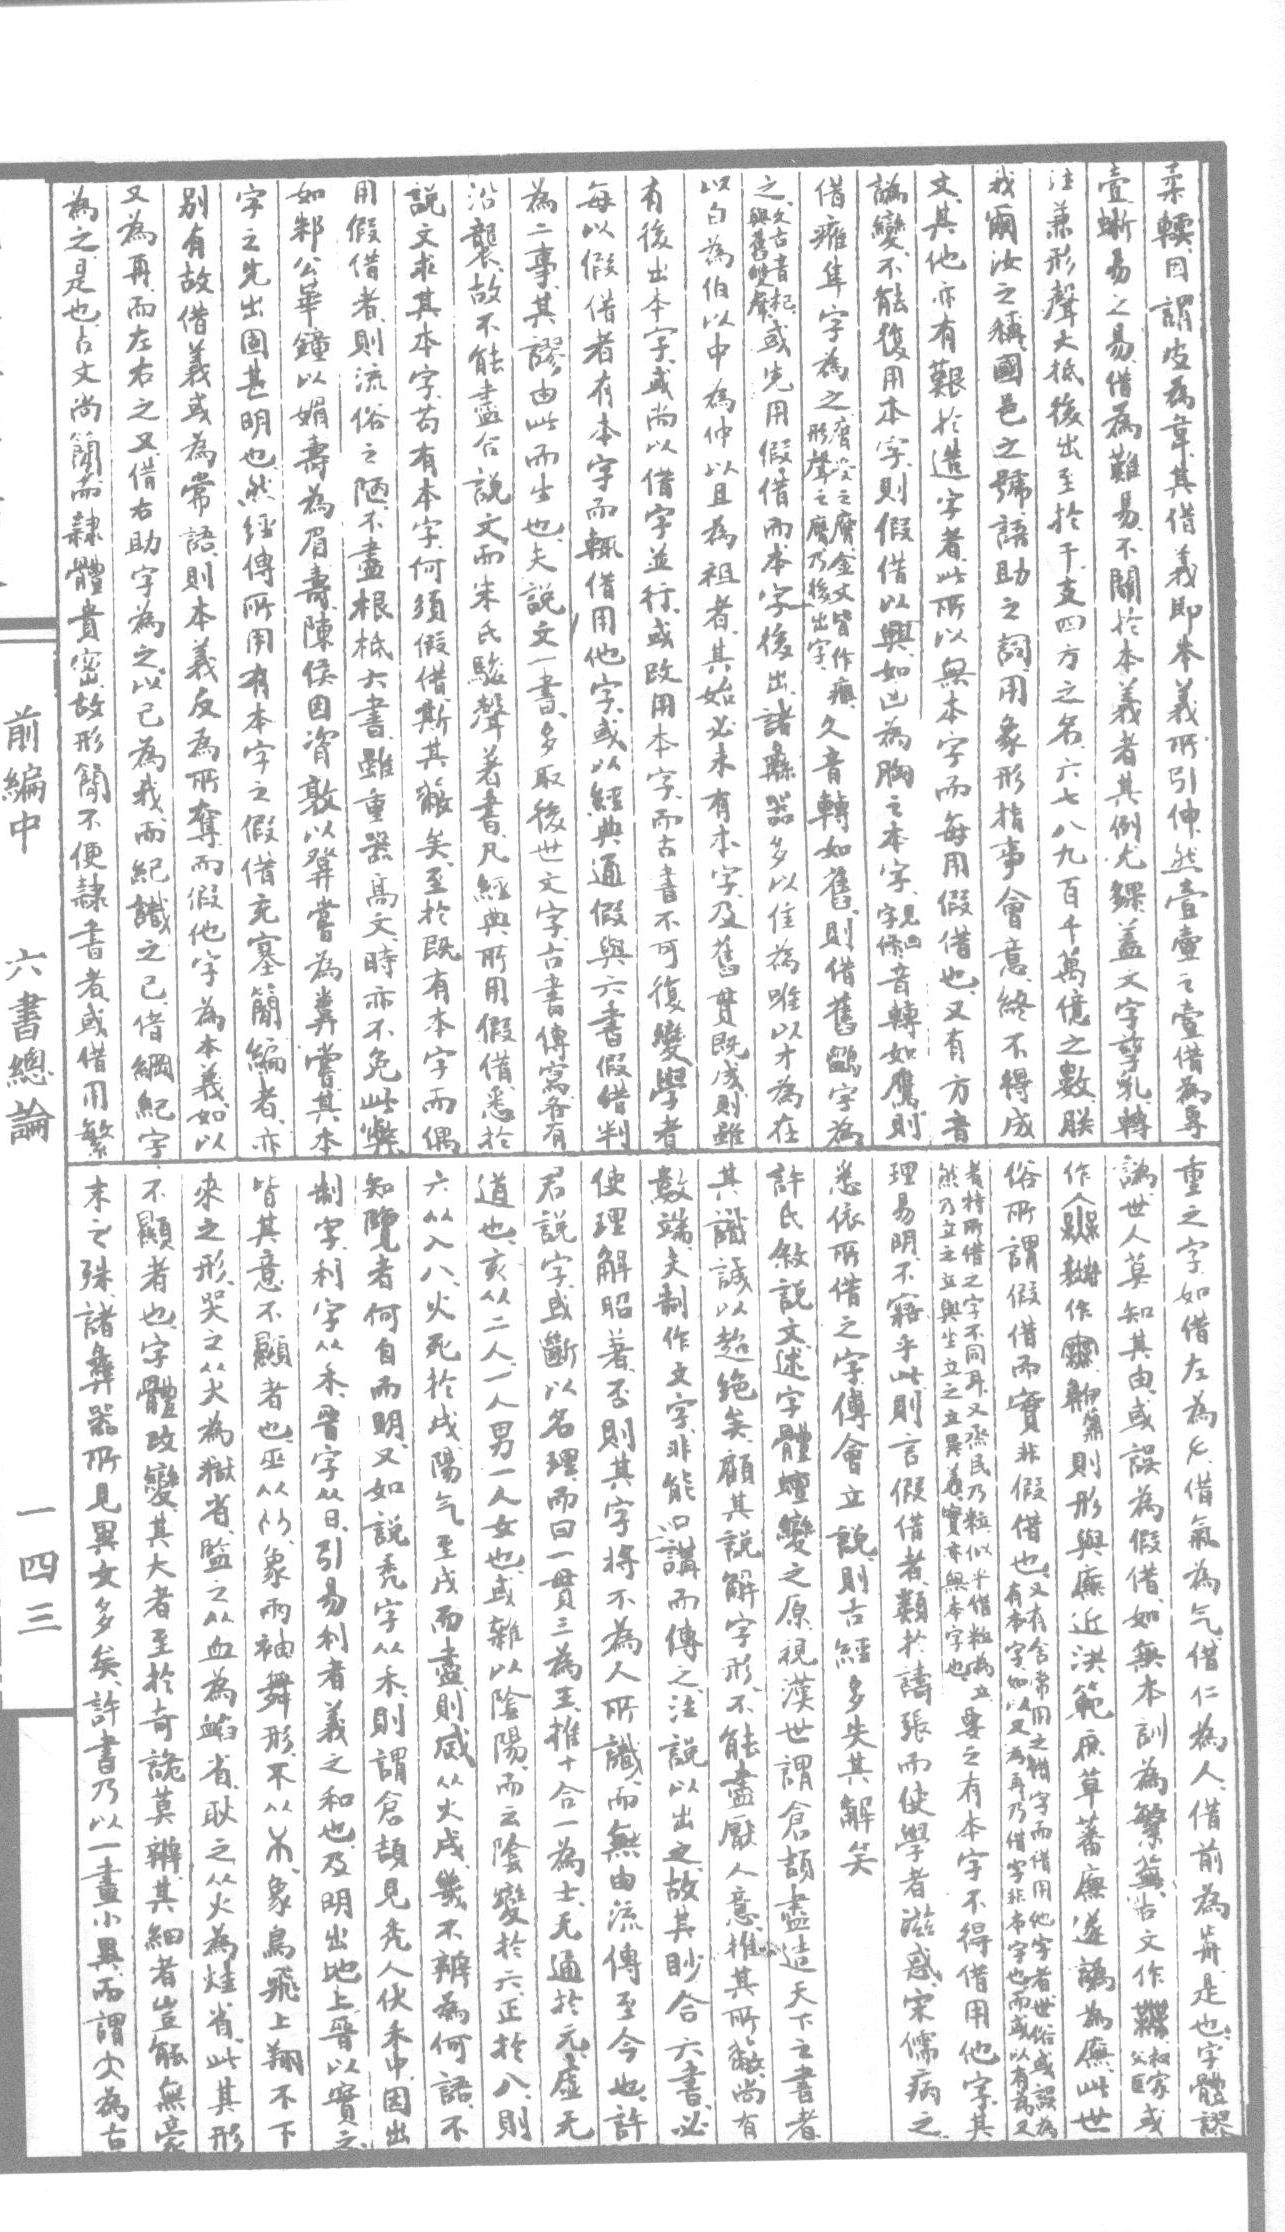 柔輭、因謂皮為韋、其借義即本義所引伸、然壹壺之壹借為專
壹、蜥易之易、借為難易、不關於本義者、其例尤夥、蓋文字孳乳、轉
注兼形聲大抵後出、至於干支四方之名、六七八九百千萬億之數、朕
我爾汝之稱、國邑之號、語助之詞、用象形指事會意、終不得成
文、其他亦有艱於造字者、此所以無本字而每用假借也、又有方音
譌變、不能復用本字、則假借以興、如凶為胸之本字、音轉如鷹、則
借雁隼字為之、久音轉如舊、則借舊鷗字為
之、或先用假借而本字後出、諸彝器多以隹為唯、以才為在
以白為伯、以中為仲、以且為祖者、其始必未有本字、及舊貫既成、則雖
有後出本字、或尚以借字並行、或改用本字、而古書不可復變、學者
每以假借者有本字而輒借用他字、或以經典通假與六書假借判
為二事、其謬由此而生也、夫說文一書、多取後世文字、古書傳寫、各有
沿襲、故不能盡合說文、而朱氏駿聲著書、凡經典所用假借、悉於
說文求其本字、苟有本字、何須假借、斯其蔽矣、至於既有本字而偶
用假借者、則流俗之陋、不盡根柢六書、雖重器高文、時亦不免此弊
如邾公華鐘以媚壽為眉壽、陳侯因資敦以羃嘗為蒸嘗、其本
字之先出固甚明也、然經傳所用有本字之假借充塞簡編者、亦
別有故、借義或為常語、則本義反為所奪、而假他字為本義、如以
又為再、而左右之又、借右助字為之、以已為我、而紀識之已、借綱紀字
為之、是也、古文尚簡而隸體貴密、故形簡不便隸書者、或借用繁
前編中 六書總論 一四三
重之字、如借左為𠂇、借氣為气、借仁為人、借前為歬、是也、字體謬
譌、世人莫知其由、或誤為假借、如無本訓為繁蕪、古文作 或
作 則形與廡近、洪範庶草蕃廡、遂譌為廡、此世
俗所謂假借而實非假借也、要之有本字不得借用他字、其
理易明、不寤乎此、則言假借者、類於譸張而使學者滋惑、宋儒病之
悉依所借之字、傅會立說、則古經多失其解矣
許氏敘說文、述字體嬗變之原、視漢世謂倉頡盡造天下之書者
其識誠以超絕矣、顧其說解字形、不能盡厭人意、推其所蔽、尚有
數端、夫制作文字、非能口講而傳之、注說以出之、故其眇合六書、必
使理解昭著、否則其字將不為人所識、而無由流傳至今也、許
君說字、或斷以名理、而曰一貫三為王、推十合一為士、无通於元、虛无
道也、亥从二人、一人男一人女也、或雜以陰陽、而云陰變於六、正於八、則
六从入八、火死於戌、陽气至戌而盡、則烕从火戌、幾不辨為何語、不
知覽者何自而明、又如說禿字从禾、則謂倉頡見禿人伏禾中、因出
制字、利字从禾、晉字从日、引易利者義之和也、及明出地上、晉以實之
皆其意不顯者也、巫从 、象兩袖舞形、不从 、象鳥飛上翔不下
來之形、哭之从犬為獄省、監之从血為䘓省、耿之从火為炷省、此其形
不顯者也、字體改變、其大者至於奇詭莫辨、其細者豈能無豪
末之殊、諸彝器所見異文多矣、許書乃以一畫小異、而謂六為古